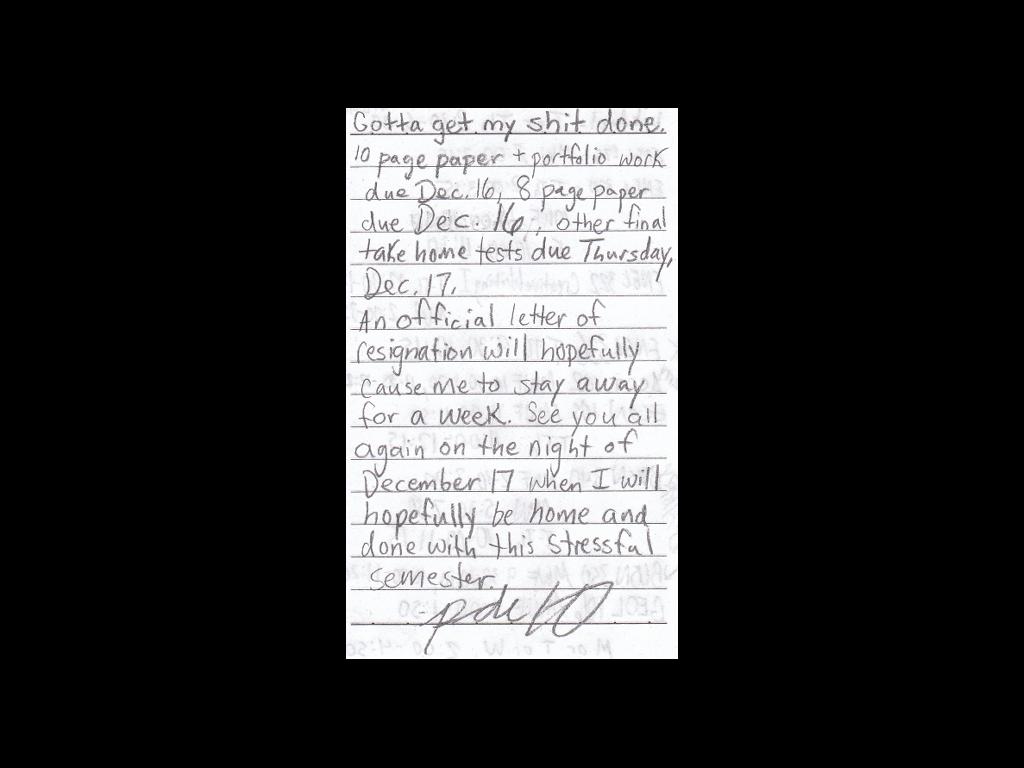 Gotta get my shit done.
10 page paper + portfolio work
due Dec. 16, 8 page paper
due Dec. 16, other final
take home tests due Thursday,
Dec. 17.
An official letter of
resignation will hopefully
cause me to stay away
for a week. See you all
again on the night of
December 17 when I will
hopefully be home and
done with this stressful
semester.